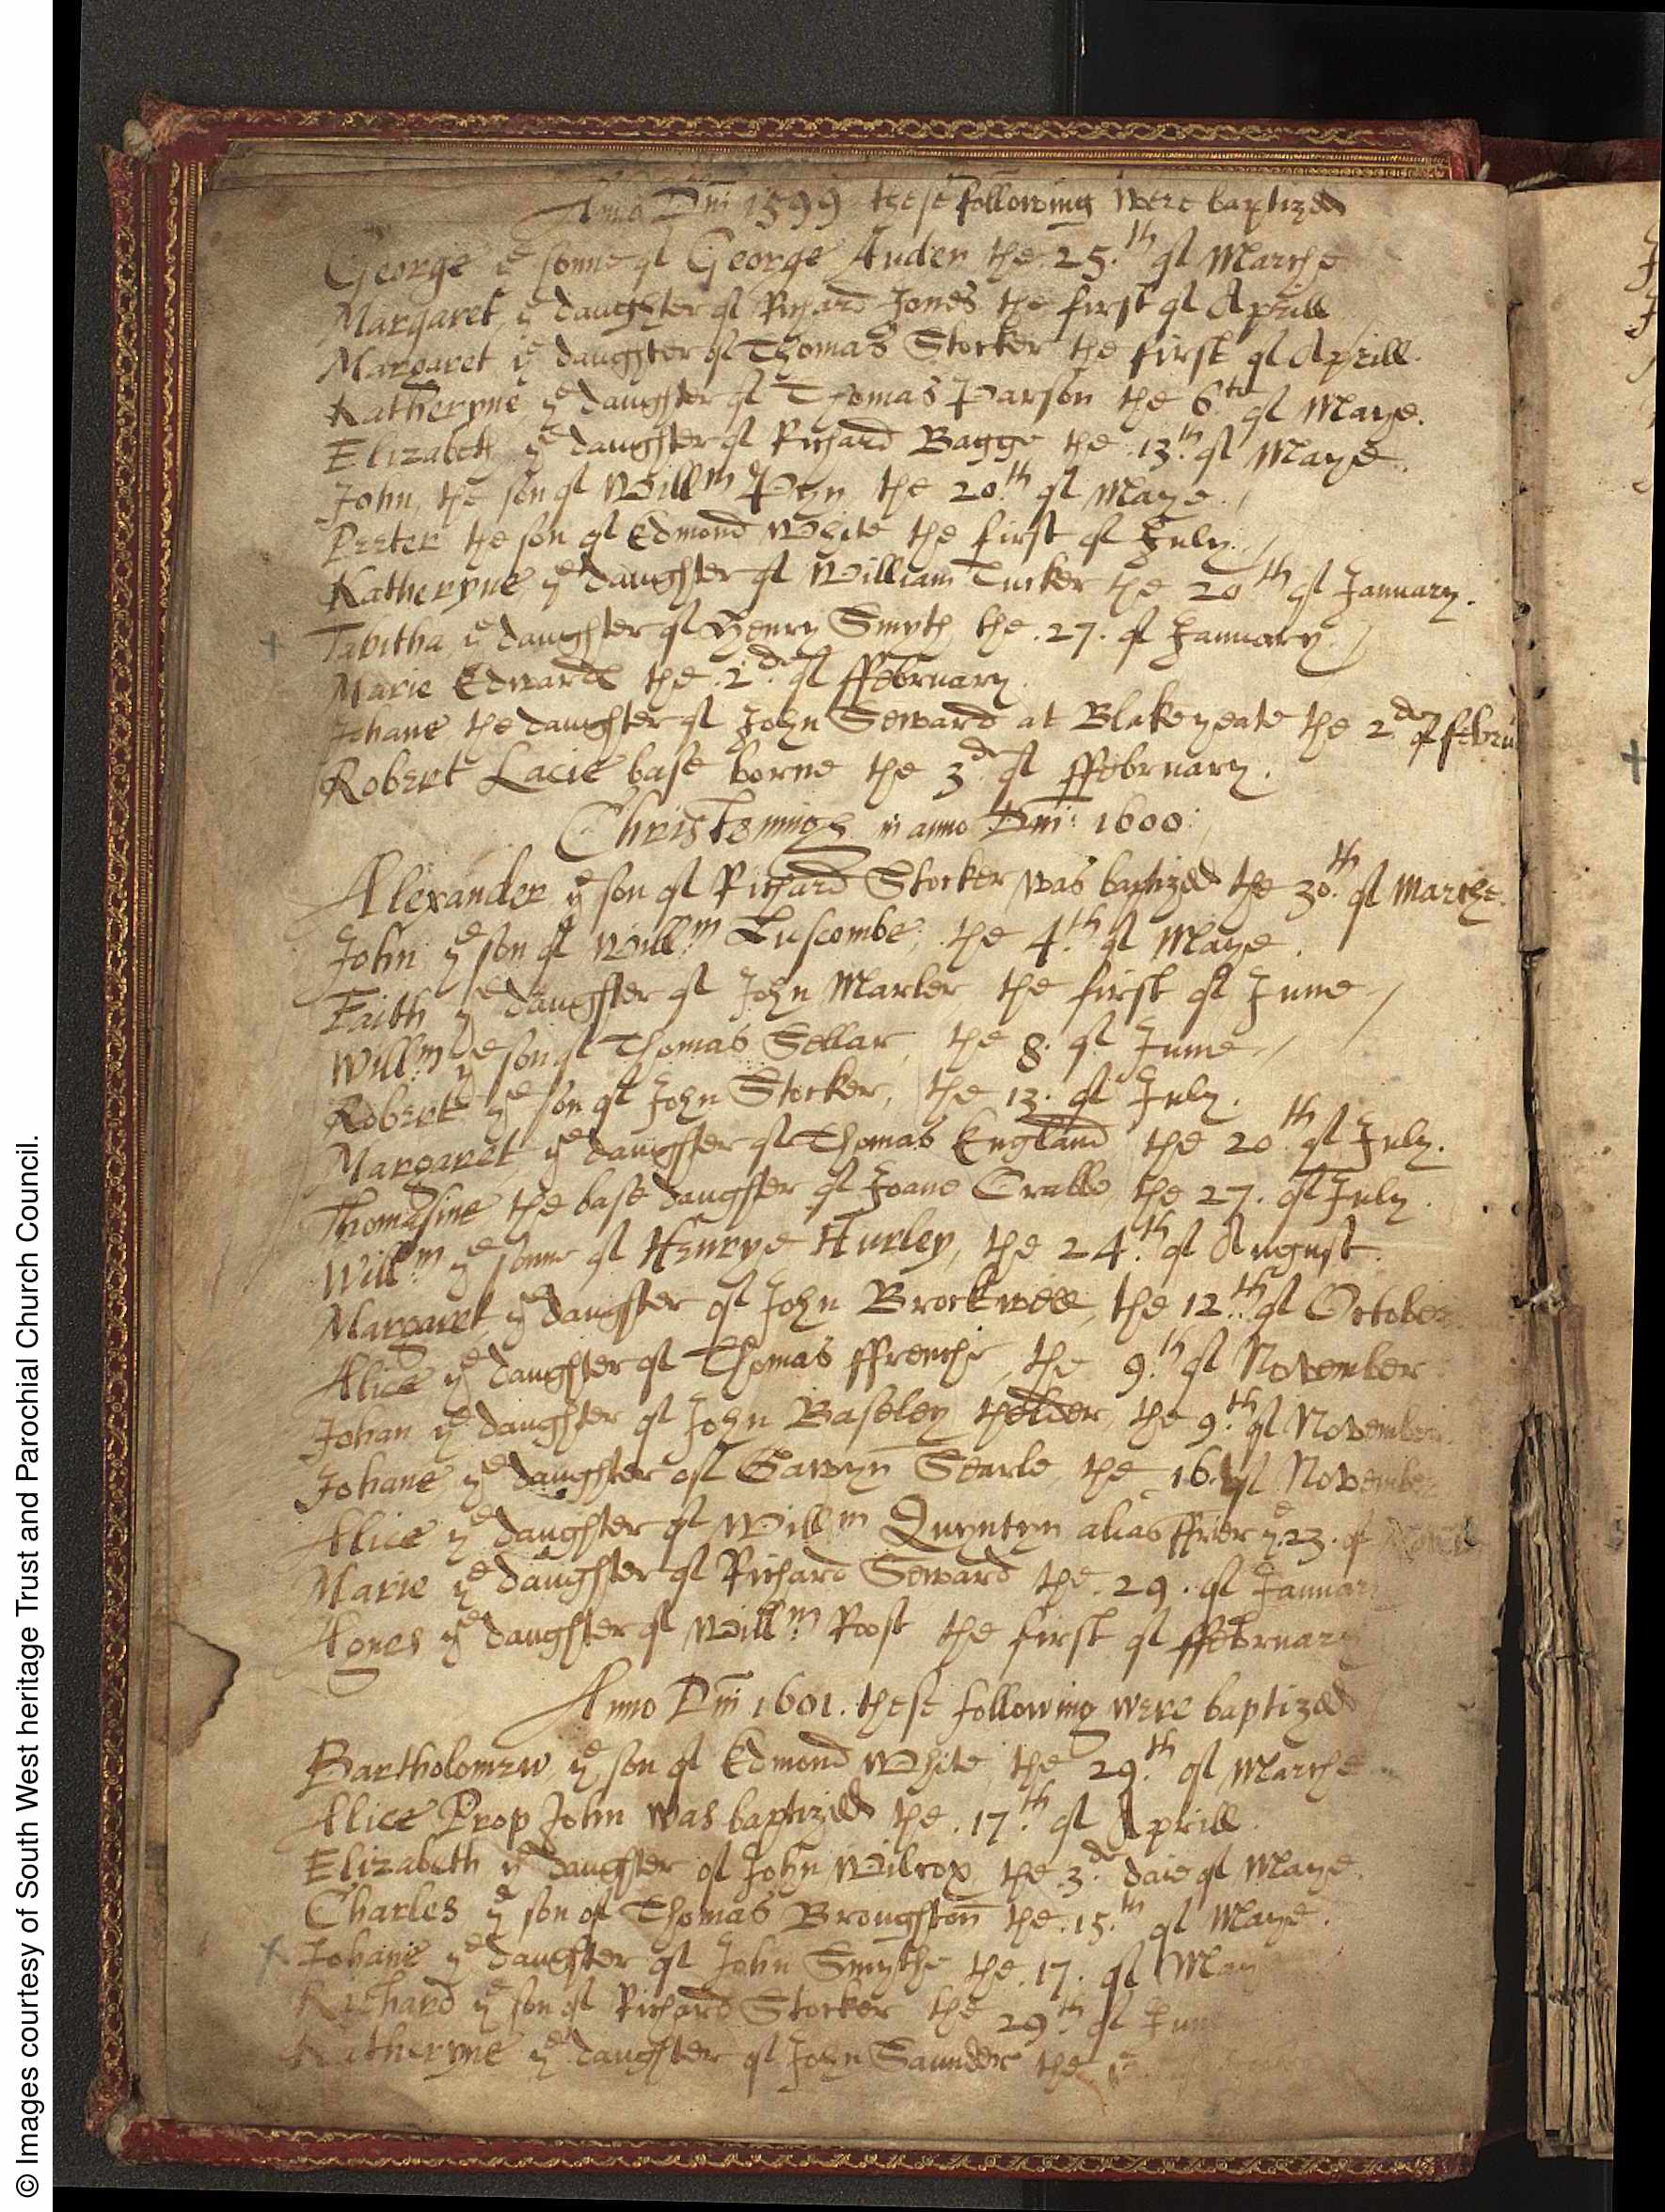 Anno Dni 1599 these following were baptized
George ye sonne of George Auden the 25.th of Marche
Margaret ye daughter of Richard Jones the first of Aprill
Margaret ye daughter of Thomas Stocker the first of Aprill.
Katheryne ye daughter of Thomas Parson the 6.th of Maye.
Elizabeth ye daughter of Richard Bagge the 13.th of Maye.
John, the son of Willm Pyn the 20.th of Maye.
Peeter the son of Edmond White the first of July.
Katheryne ye daughter of William Tucker the 20th of January.
Tabitha ye daughter of Henry Smyth the .27. of January.
Marie Edwards the .2d. of ffebruary.
Johane the daughter of John Seward at Blakeyeate the 2d of febru
Robert Lacie base borne the 3d of ffebruary.
Christenings in anno Dni: 1600:
Alexander ye son of Richard Stocker was baptized the 30.th of Marche.
John ye son of Willm Luscombe, the 4.th of Maye.
Faith ye daughter of John Marler the first of June
Willm ye son of Thomas Sellar, the 8. of June
Robert ye son of John Stocker, the 13. of July.
Margaret ye daughter of Thomas England the 20th of July.
Thomasine the base daughter of Joane Crabb the 27. of July.
Willm ye sonne of Henrye Hurley, the 24.th of August.
Margaret ye daughter of John Brockwell, the 12.th of October
Alice ye daughter of Thomas ffrenche, the 9.th of November
Johan ye daughter of John Baseley thelder, the 9.th of November.
Johane ye daughter of Gawyn Searle the 16.th of November
Alice ye daughter of Willm Quyntyn alias ffrier ye .23. of
Marie ye daughter of Richard Seward the .29. of January
Agnes ye daughter of Willm Poost the first of ffebruary
Anno Dni 1601. these following were baptized
Bartholomew ye son of Edmond White the 29.th of Marche
Alice Prop John was baptized the .17.th of Aprill.
Elizabeth ye daughter of John Wilcox the .3.d daie of Maye.
Charles ye son of Thomas Broughton the .15.th of Maye.
Johane ye daughter of John Smythe the .17. of May
Richard ye son of Richard Stocker the 29th of June
Katheryne ye daughter of John Saunders the
© Images courtesy of South West heritage Trust and Parochial Church Council.